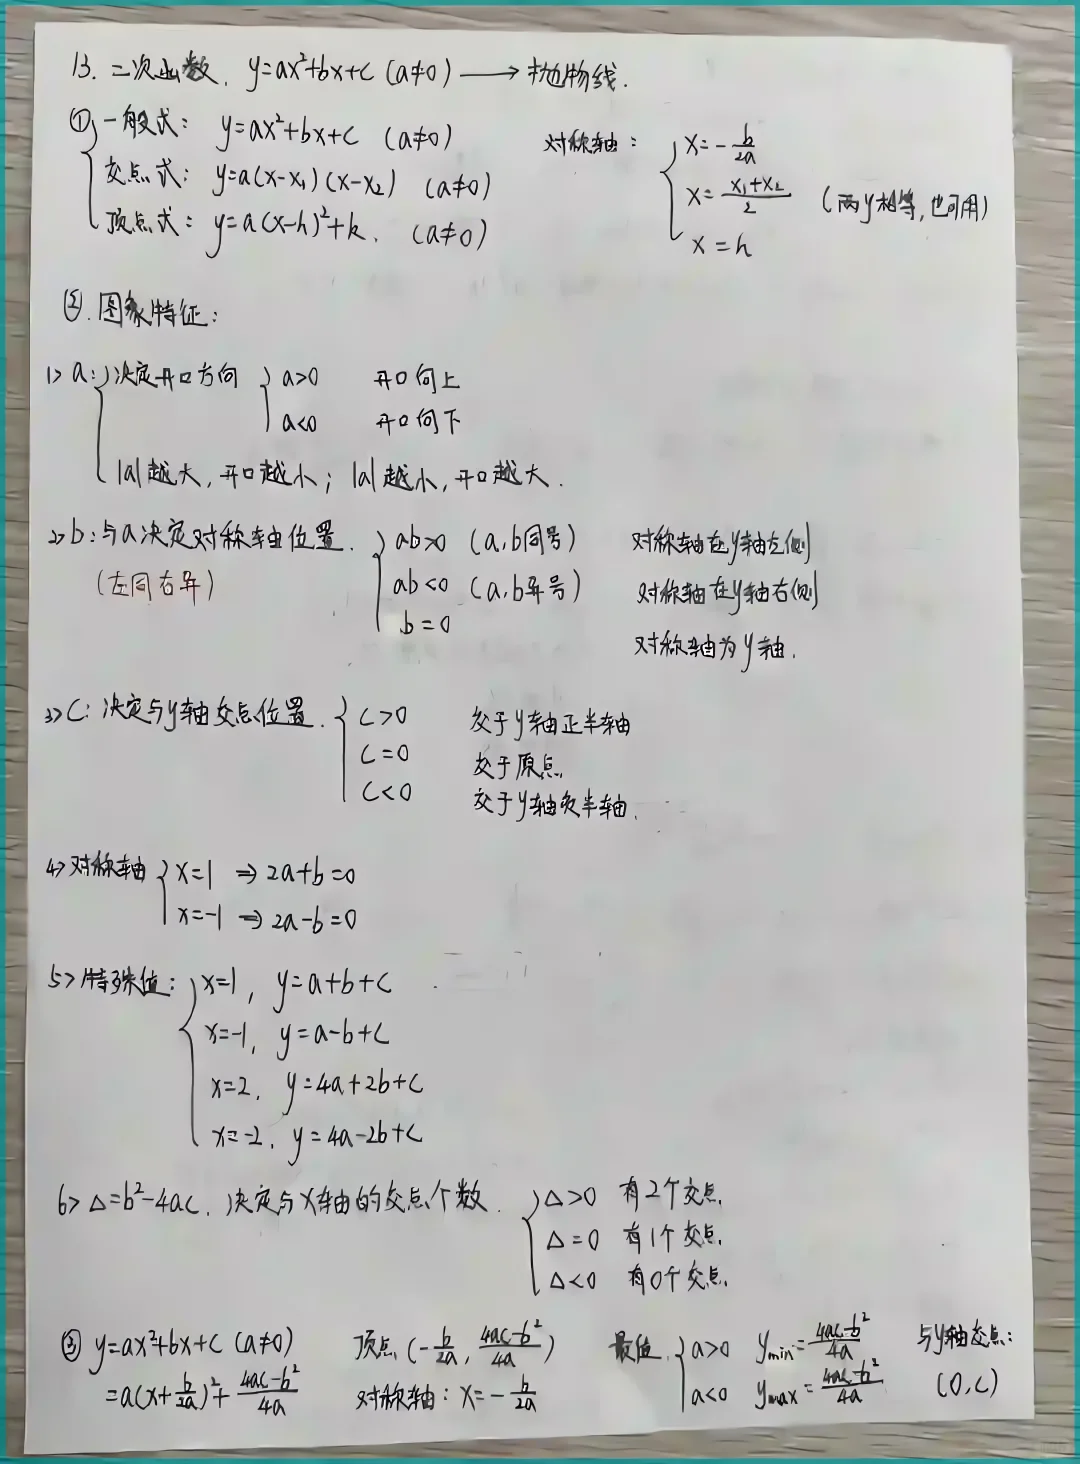 13. 二次函数. y=ax²+bx+c (a≠0) ⟶ 抛物线.
① { 一般式: y=ax²+bx+c (a≠0) 对称轴: { x=-b/2a
交点式: y=a(x-x₁)(x-x₂) (a≠0) x=(x₁+x₂)/2 (两y相等,也可用)
顶点式: y=a(x-h)²+k. (a≠0) x=h
②. 图象特征:
1> a: { 决定开口方向 { a>0 开口向上
a<0 开口向下
|a|越大,开口越小; |a|越小,开口越大.
2> b: 与a决定对称轴位置. { ab>0 (a,b同号) 对称轴在y轴左侧
(左同右异) ab<0 (a,b异号) 对称轴在y轴右侧
b=0 对称轴为y轴.
3> C: 决定与y轴交点位置. { c>0 交于y轴正半轴
c=0 交于原点.
c<0 交于y轴负半轴.
4> 对称轴 { x=1 ⇒ 2a+b=0
x=-1 ⇒ 2a-b=0
5> 特殊值: { x=1, y=a+b+c
x=-1, y=a-b+c
x=2, y=4a+2b+c
x=-2, y=4a-2b+c
6> Δ=b²-4ac. 决定与x轴的交点个数. { Δ>0 有2个交点.
Δ=0 有1个交点.
Δ<0 有0个交点.
③ y=ax²+bx+c (a≠0) 顶点(-b/2a, (4ac-b²)/4a) 最值. { a>0 ymin=(4ac-b²)/4a 与y轴交点:
=a(x+b/2a)²+(4ac-b²)/4a 对称轴: x=-b/2a a<0 ymax=(4ac-b²)/4a (0,c)